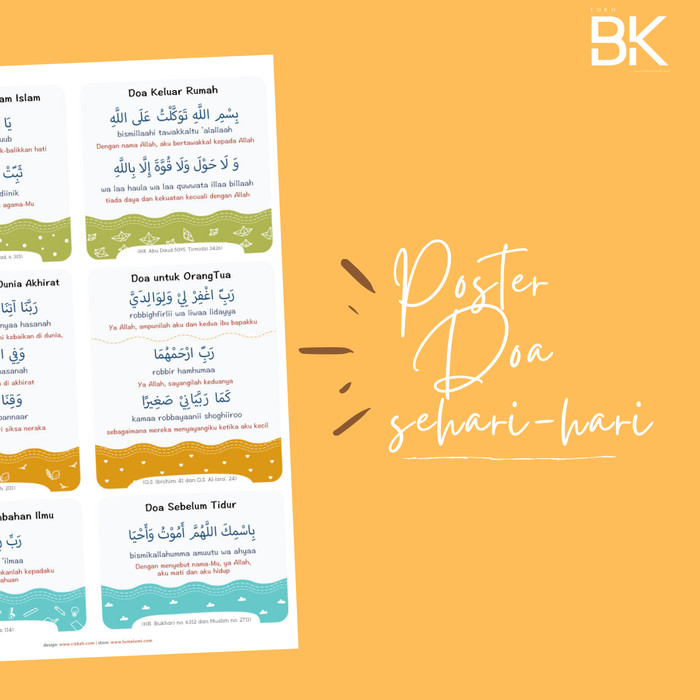 TOKO
BK
am Islam
يَا
uub
k-balikkan hati
ثَبِّتْ
diinik
agama-Mu
Doa Keluar Rumah
بِسْمِ اللَّهِ تَوَكَّلْتُ عَلَى اللَّهِ
bismillaahi tawakkaltu 'alallaah
Dengan nama Allah, aku bertawakkal kepada Allah
وَ لَا حَوْلَ وَلَا قُوَّةَ إِلَّا بِاللَّهِ
wa laa haula wa laa quwwata illaa billaah
tiada daya dan kekuatan kecuali dengan Allah
(HR. Abu Daud 5095, Tirmidzi 3426)
Dunia Akhirat
رَبَّنَا آتِنَا
nyaa hasanah
mi kebaikan di dunia,
وَفِي
hasanah
n di akhirat
وَقِنَا
bannaar
ri siksa neraka
h. 201)
Doa untuk OrangTua
رَبِّ اغْفِرْ لِيْ وَلِوَالِدَيَّ
robbighfirlii wa liwaa lidayya
Ya Allah, ampunilah aku dan kedua ibu bapakku
رَبِّ ارْحَمْهُمَا
robbir hamhumaa
Ya Allah, sayangilah keduanya
كَمَا رَبَّيَانِيْ صَغِيْرًا
kamaa robbayaanii shoghiiroo
sebagaimana mereka menyayangiku ketika aku kecil
(Q.S. Ibrahim: 41 dan Q.S. Al-Isra': 24)
mbahan Ilmu
رَبِّ
'ilmaa
hkanlah kepadaku
ahuan
114)
Doa Sebelum Tidur
بِاسْمِكَ اللَّهُمَّ أَمُوْتُ وَأَحْيَا
bismikallahumma amuutu wa ahyaa
Dengan menyebut nama-Mu, ya Allah,
aku mati dan aku hidup
(HR. Bukhari no. 6312 dan Muslim no. 2711)
Poster
Doa
sehari-hari